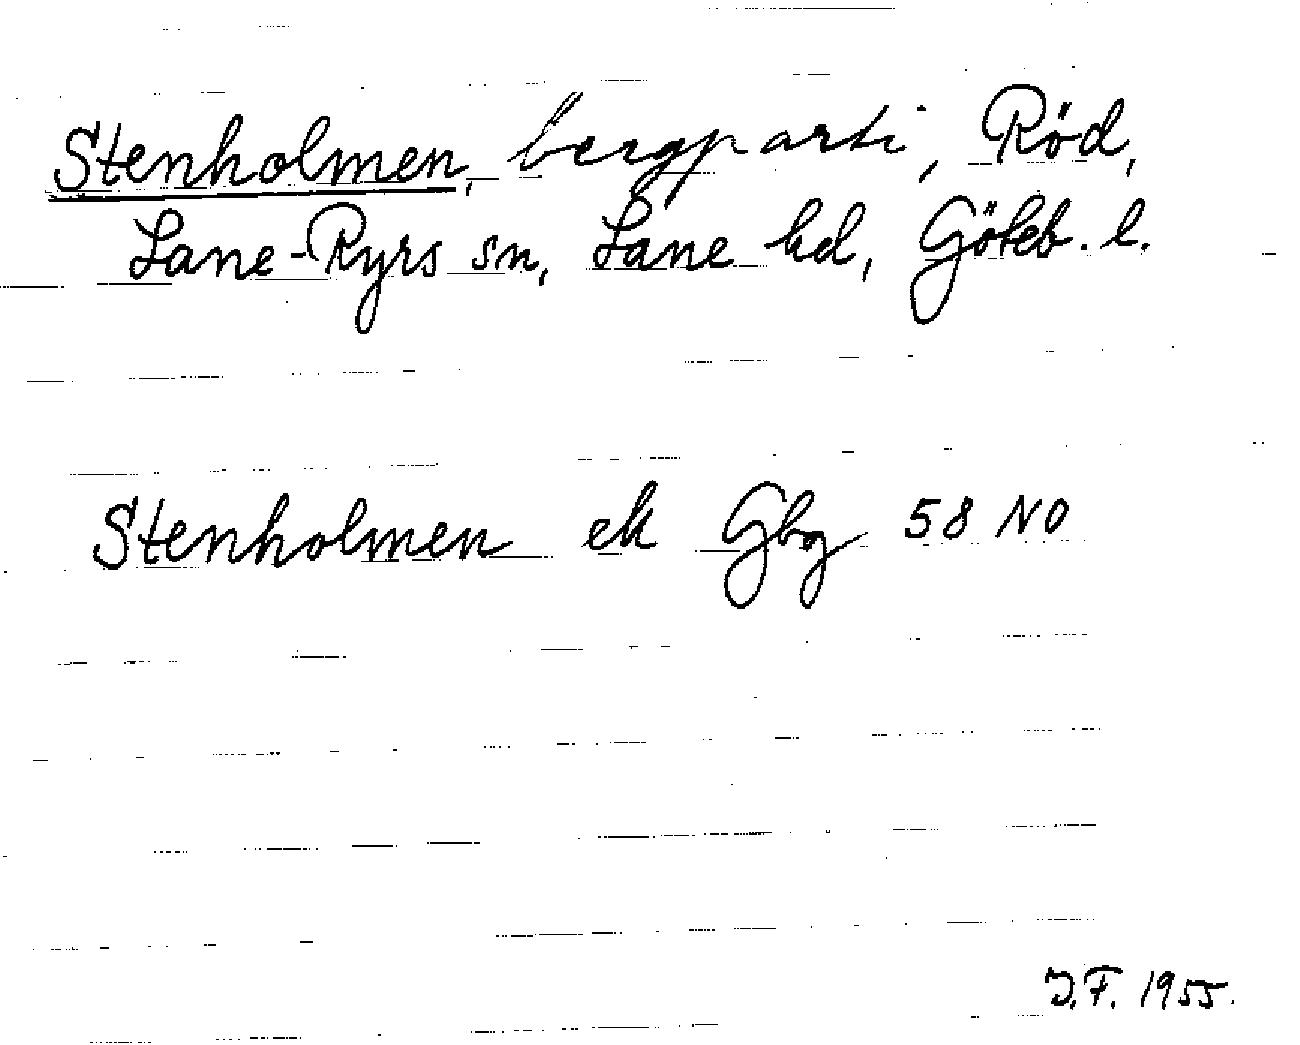 Stenholmen, bergparti, Röd,
Lane-Ryrs sn, Lane hd, Göteb. l.
Stenholmen ek Gbg 58 NO
J.F. 1955.